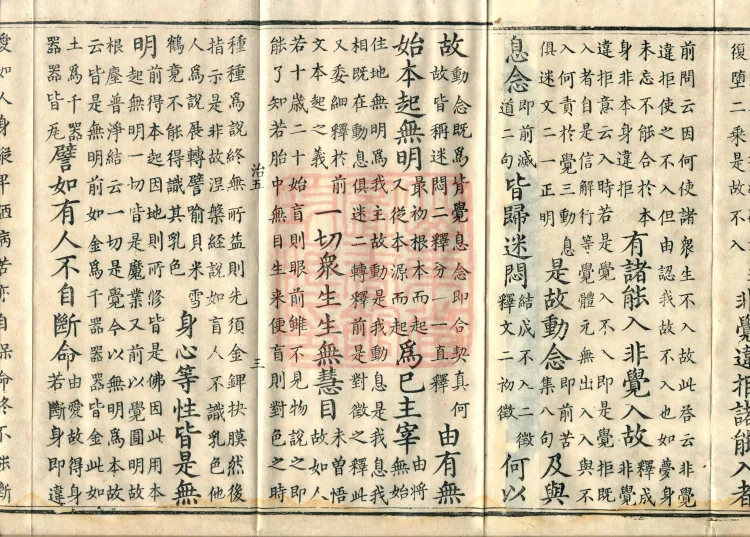 復墮二乘是故不入 非覺違拒諸能入者
前問云因何使諸衆生不入故此荅云非覺
違拒使之不入但由認我故不入也如夢身
未忘不能合於本
身非本身違拒
有諸能入非覺入故
釋成
非覺
違拒意云入時若是覺入不入即是覺拒既
入者自是信解行等覺體元無出入入與不
入何責於覺三動息
俱迷文二一正明
是故動念
即前苦
集八句
及與
息念
即前滅
道二句
皆歸迷悶
結成不入二徵
釋文二初徵
何以
故
動念既爲背覺息念即合契真何
故皆稱迷悶二釋分一一直釋
由有無
始本起無明
最初根本而起
又從本源而起
爲己主宰
由將
無始
住地無明爲我主故動是我動息是我息我
相既在動息俱迷二轉釋前是對徵之釋此
又委細釋於前
文本起之義
一切衆生生無慧目
未曾悟
故如人
若十歲二十始盲則眼前雖不見物說之即
能了知若胎中無目生來便盲則對色之時
治五
三
種種爲說終無所益則先須金錍抉膜然後
指示是非故涅槃經說如盲人不識乳色他
人爲說展轉譬喻貝米雪
鶴竟不能得識其乳色
身心等性皆是無
明
前得本起因地則所修皆是佛因此用本
起無明一切皆是魔業又前以覺圓明故
根塵普淨結云一切是覺今以無明爲本故
云皆是無明前如金爲千器器器皆金此如
土爲千器
器器皆瓦
譬如有人不自斷命
由愛故得身
若斷身即違
愛如人身縱 病苦亦自保命終不能斷